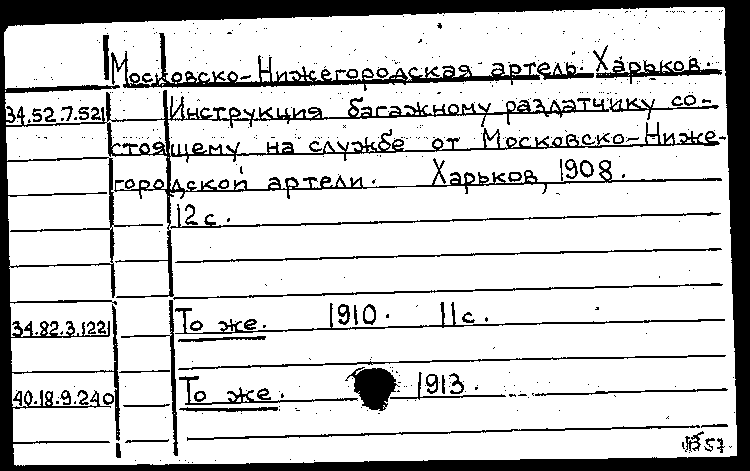 Московско-Нижегородская артель. Харьков.
34.52.7.521 Инструкция багажному раздатчику со-
стоящему на службе от Московско-Ниже-
городской артели. Харьков, 1908.
12 с.
34.82.3.122 То же. 1910. 11 с.
40.18.9.240 То же. 1913.
57